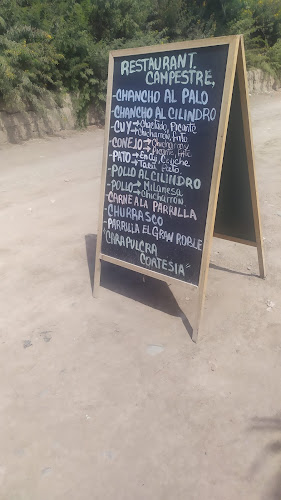 RESTAURANT
CAMPESTRE,
-CHANCHO AL PALO
-CHANCHO AL CILINDRO
-CUY → Chactado, Picante
→ Chicharrón, Frito
-CONEJO → Chicharrón
→ Picante, Frito
-PATO →
-POLLO AL CILINDRO
-POLLO → Milanesa
→ Chicharrón
-CARNE A LA PARRILLA
-CHURRASCO
-PARRILLA EL GRAN ROBLE
"CARAPULCRA
CORTESIA"